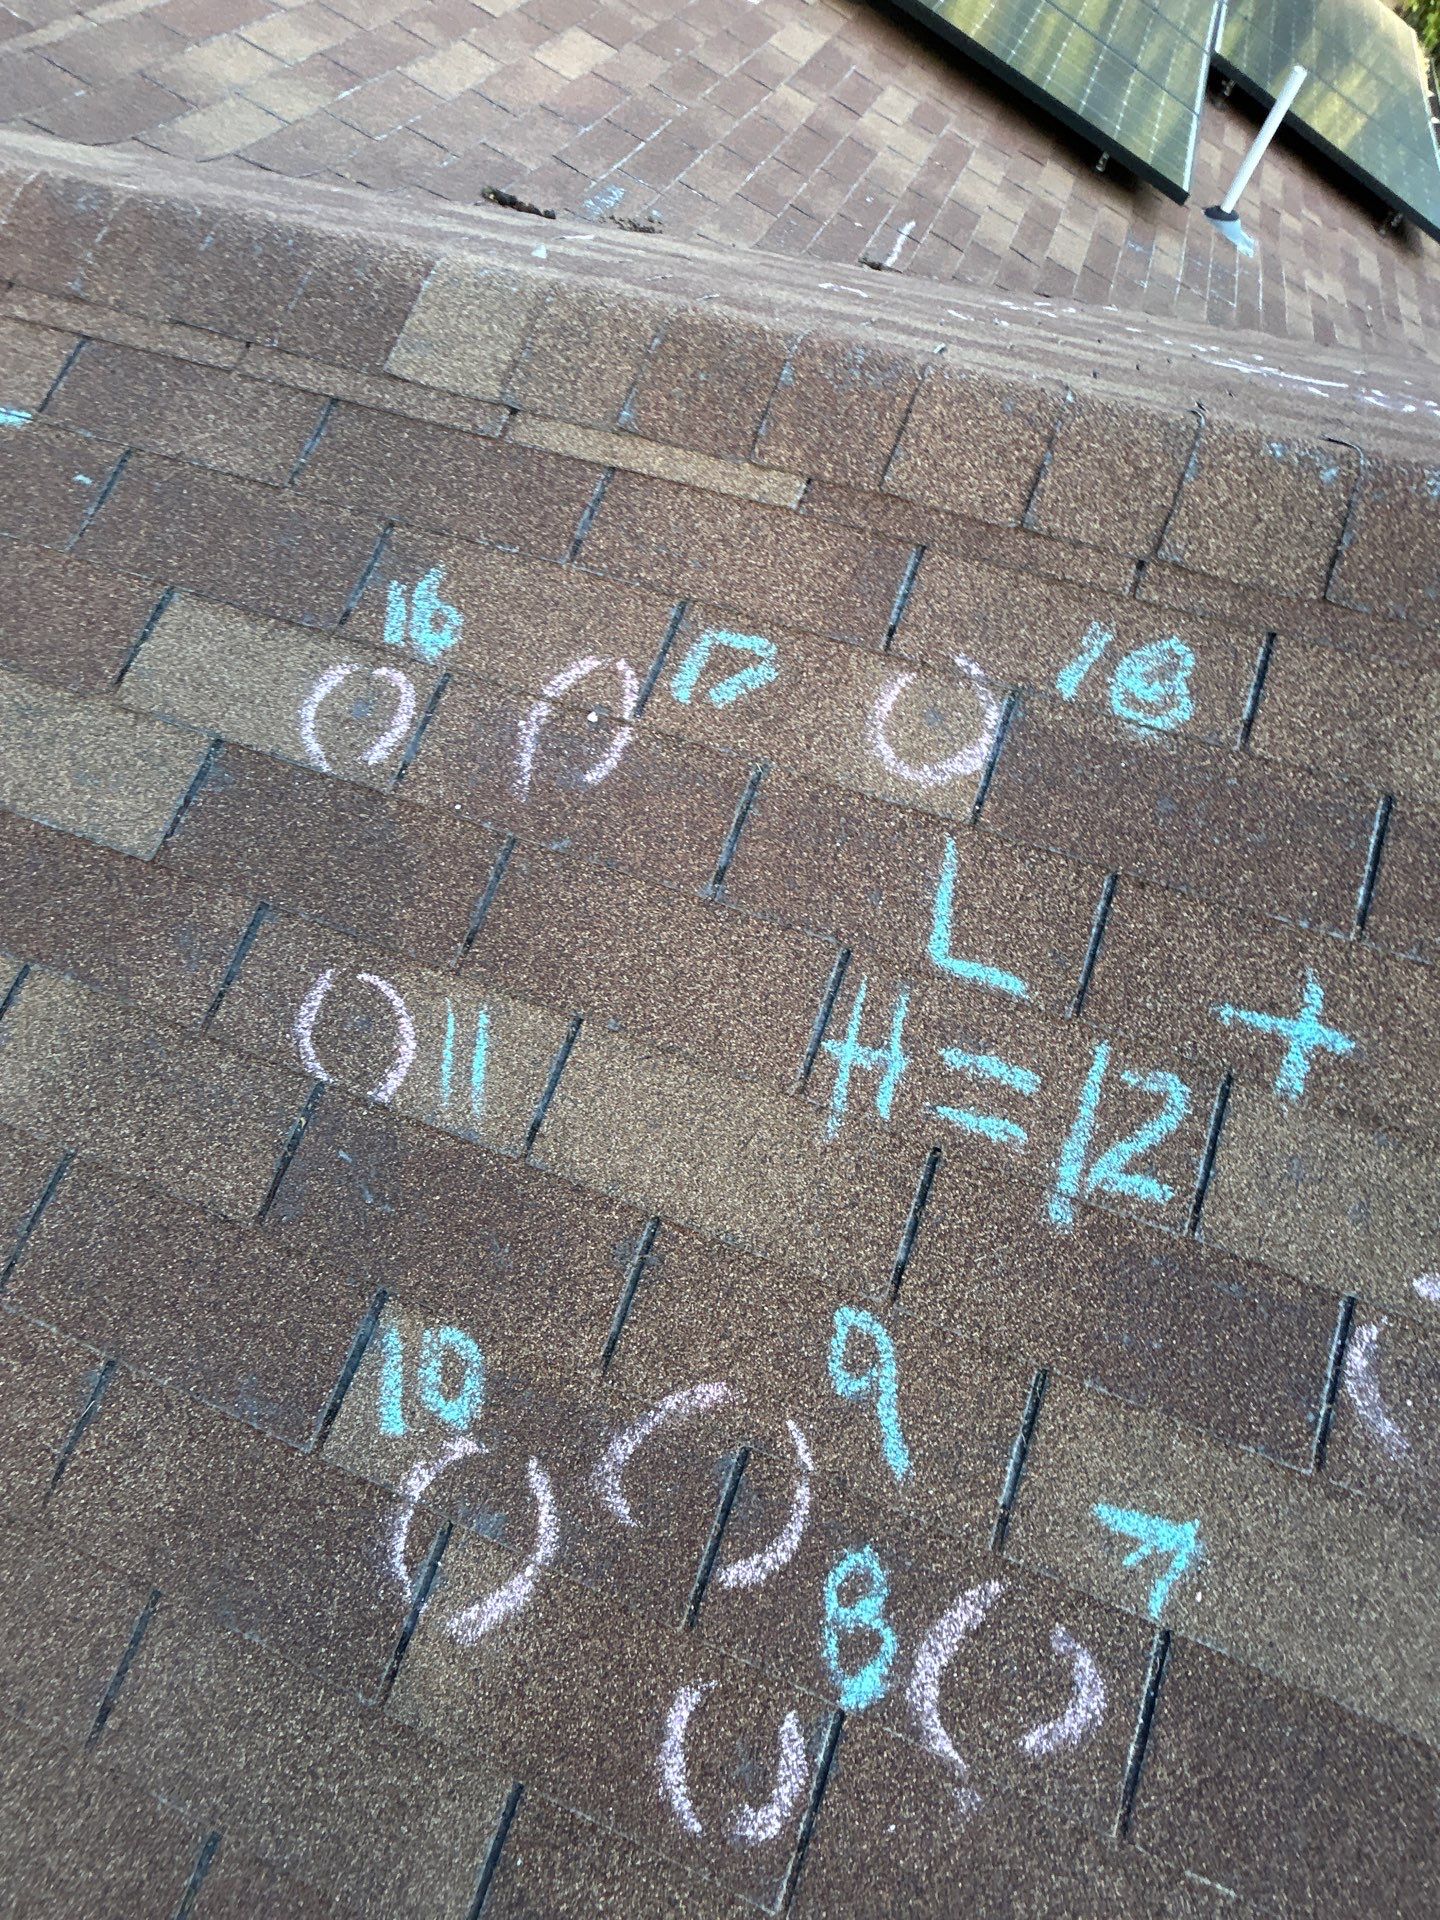 16
17
18
L
H=12+
11
10
9
8
7